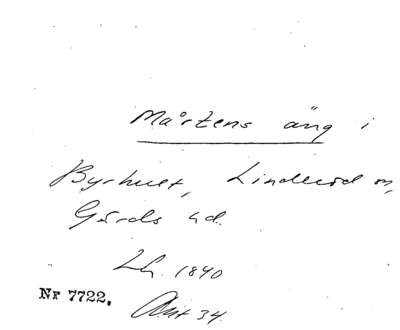 Mårtens äng i
Byrhult, Linderöd sn,
Gärds hd.
Lh. 1840
Nr 7722. Akt 34.